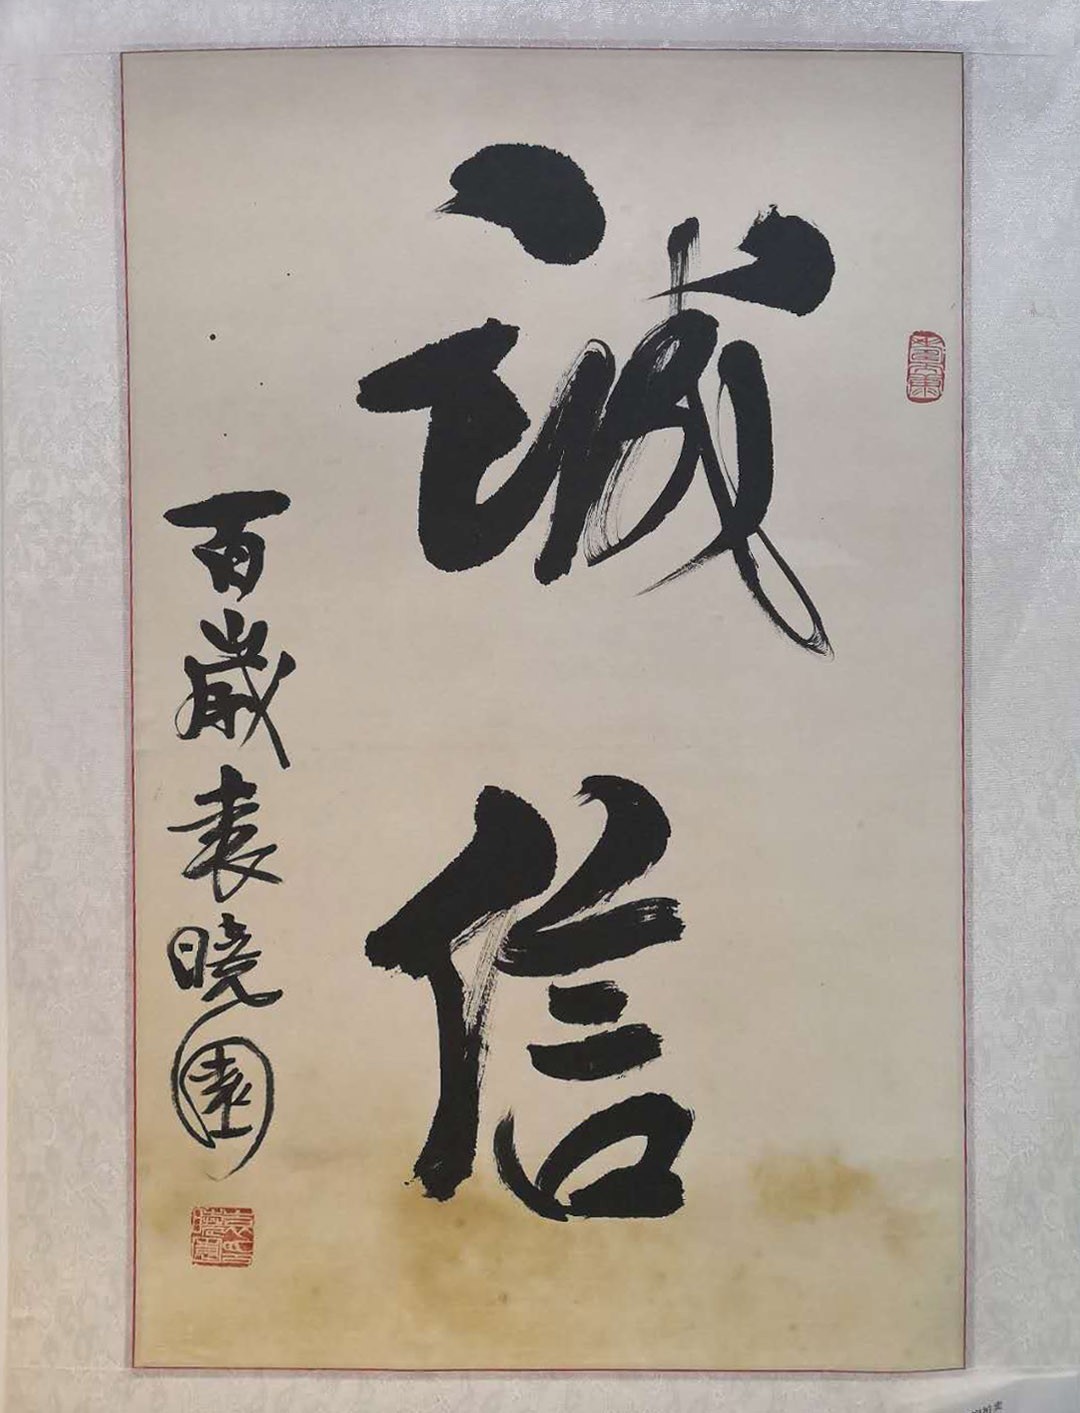 誠信
百歲袁曉園